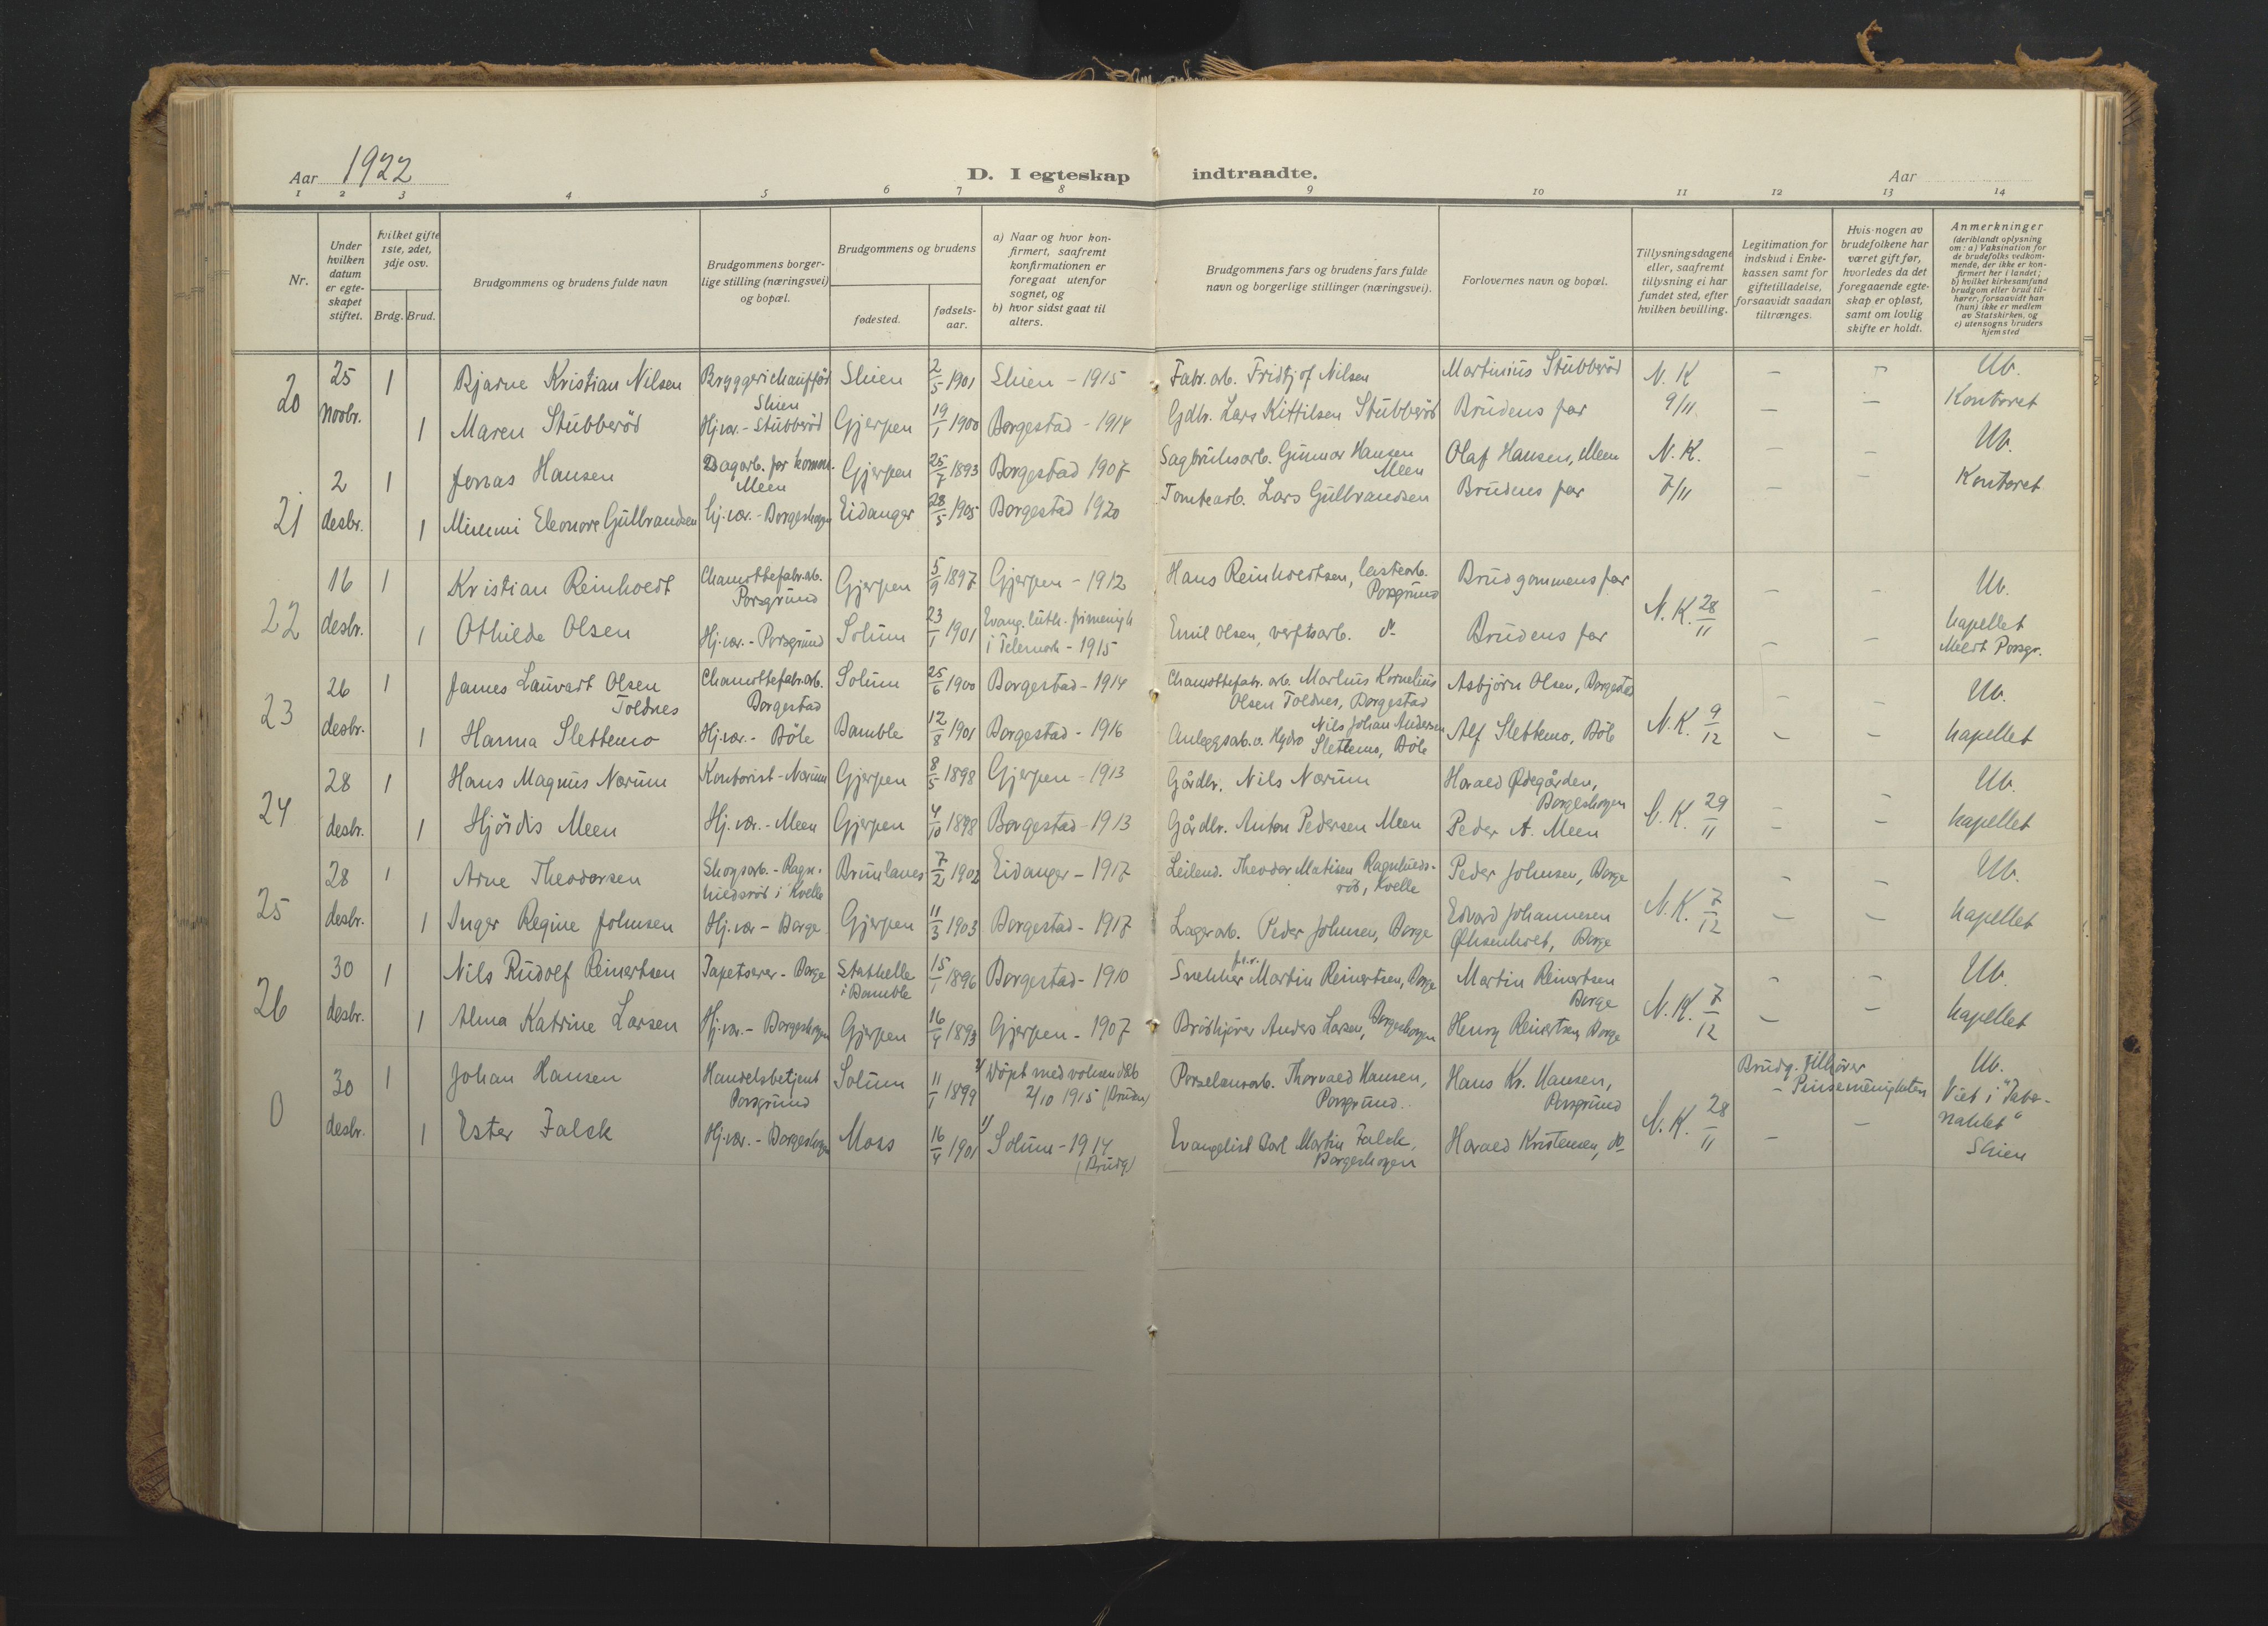 Aar 1922
D. I egteskap indtraadte.
Aar
1 2 3 4 5 6 7 8 9 10 11 12 13 14
Nr.
Under hvilken datum er egteskapet stiftet.
Hvilket gifte 1ste, 2det, 3dje osv.
Brdg. Brud.
Brudgommens og brudens fulde navn
Brudgommens borgerlige stilling (næringsvei) og bopæl.
Brudgommens og brudens
fødested.
fødselsaar.
a) Naar og hvor konfirmert, saafremt konfirmationen er foregaat utenfor sognet, og
b) hvor sidst gaat til alters.
Brudgommens fars og brudens fars fulde navn og borgerlige stillinger (næringsvei).
Forlovernes navn og bopæl.
Tillysningsdagene eller, saafremt tillysning ei har fundet sted, efter hvilken bevilling.
Legitimation for indskud i Enkekassen samt for giftetilladelse, forsaavidt saadan tiltrænges.
Hvis nogen av brudefolkene har været gift før, hvorledes da det foregaaende egteskap er opløst, samt om lovlig skifte er holdt.
Anmerkninger (deriblandt oplysning om: a) Vaksination for de brudefolks vedkommende, der ikke er konfirmert her i landet; b) hvilket kirkesamfund brudgom eller brud tilhører, forsaavidt han (hun) ikke er medlem av Statskirken, og c) utensogns bruders hjemsted
20 25 novbr. 1 Bjarne Kristian Nilsen Bryggerichauffør Skien Skien 2/5 1901 Skien - 1915 Fabr. arb. Fridtjof Nilsen Martinius Stubberød N. K 9/11 - - Ub. Kontoret
1 Maren Stubberöd Hj. vær. - Stubberöd Gjerpen 19/1 1900 Borgestad - 1914 Gdbr. Lars Kittilsen Stubberöd Brudens far - -
21 2 desbr. 1 Jonas Hansen Dagarb. for komm. Meen Gjerpen 25/7 1893 Borgestad 1907 Sagbruksarb. Gunnar Hansen Meen Olaf Hansen, Meen N. K. 7/11 - - Ub. Kontoret
1 Mimmi Eleonore Gulbrandsen Hj. vær. - Borgeskogen Eidanger 28/5 1905 Borgestad 1920 Tomtearb. Lars Gulbrandsen Brudens far - -
22 16 desbr. 1 Kristian Reinholdt Chamottefabr. arb. Porsgrund Gjerpen 5/9 1897 Gjerpen - 1912 Hans Reinholdtsen, lastearb. Porsgrund Brudgommens far N. K. 28/11 - - Ub. kapellet
1 Othilde Olsen Hj. vær. - Porsgrund Solum 23/1 1901 Evang. luth. frimenigh. i Telemark - 1915 Emil Olsen, verftsarb. do Brudens far - - Meldt Porsgr.
23 26 desbr. 1 James Lauvart Olsen Toldnes Chamottefabr. arb. Borgestad Solum 25/6 1900 Borgestad - 1914 Chamottefabr. arb. Marlius Kornelius Olsen Toldnes, Borgestad Asbjørn Olsen, Borgestad N. K. 9/12 - - Ub. kapellet
1 Hanna Slettemo Hj. vær. - Böle Bamble 12/8 1901 Borgestad - 1916 Anleggsarb. v. Hydro Nils Johan Andersen Slettemo, Böle Alf Slettemo, Böle - -
24 28 desbr. 1 Hans Magnus Nærum Kontorist - Nærum Gjerpen 8/5 1898 Gjerpen - 1913 Gårdbr. Nils Nærum Harald Ødegården, Borgeskogen N. K. 29/11 - - Ub. kapellet
1 Hjördis Meen Hj. vær. - Meen Gjerpen 4/10 1898 Borgestad - 1913 Gårdbr. Anton Pedersen Meen Peder A. Meen - -
25 28 desbr. 1 Arne Theodorsen Skogsarb. - Ragnhildsröd i Kvelle Brunlanes 7/2 1902 Eidanger - 1917 Leilend. Theodor Matisen Ragnhildsröd, Kvelle Peder Johnsen, Borge N. K. 7/12 - - Ub. kapellet
1 Inger Regine Johnsen Hj. vær - Borge Gjerpen 11/3 1903 Borgestad - 1917 Lagerarb. Peder Johnsen, Borge Edvard Johannesen Øksenholt, Borge - -
26 30 desbr. 1 Nils Rudolf Reinertsen Tapetserer - Borge Stathelle i Bamble 15/1 1896 Borgestad - 1910 Snekker Martin Reinertsen, Borge Martin Reinertsen Borge N. K. 7/12 - - Ub. kapellet
1 Alma Katrine Larsen Hj. vær. - Borgeskogen Gjerpen 16/4 1893 Gjerpen - 1907 Brödkjörer Anders Larsen, Borgeskogen Henry Reinertsen, Borge - -
0 30 desbr. 1 Johan Hansen Handelsbetjent Porsgrund Solum 11/1 1899 2/ Døpt med voksendåb 2/10 1915 (Bruden) Porselensarb. Thorvald Hansen, Porsgrund. Hans Kr. Hansen, Porsgrund N. K. 28/11 Brudg. tilhører - Pinsemenigheten Ub. Viet i "Tabernaklet" Skien
1 Ester Falck Hj. vær. - Borgeskogen Moss 16/4 1901 1/ Solum - 1914 (Brudg) Evangelist Carl Martin Falck, Borgeskogen Harald Kristensen, do - -